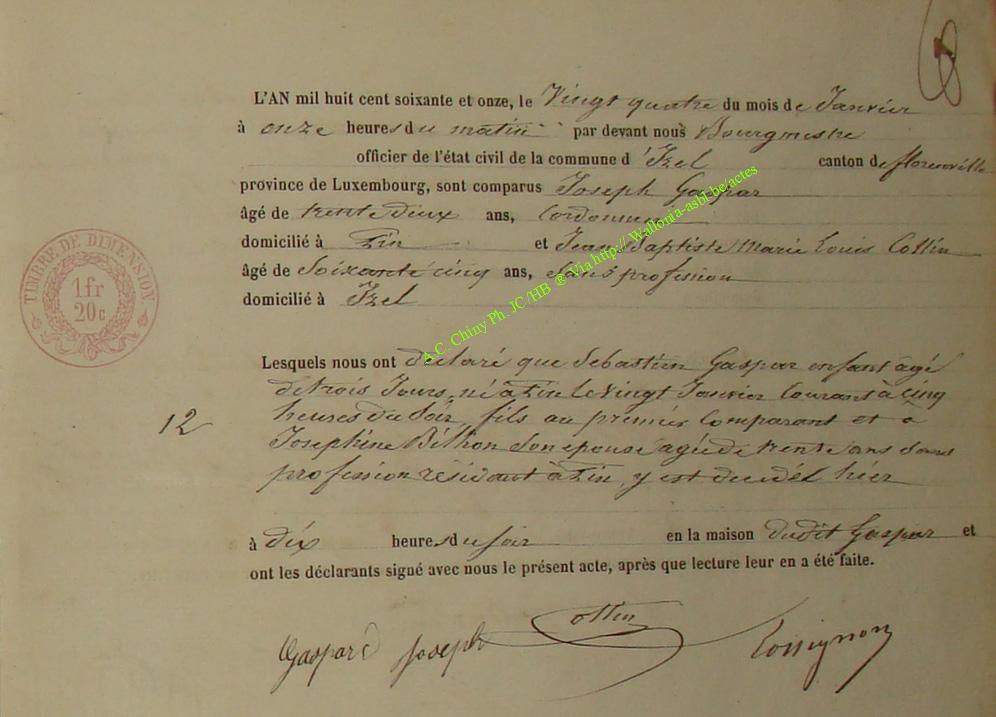 L'AN mil huit cent soixante et onze, le Vingt quatre du mois de Janvier
à onze heures du matin par devant nous Bourgmestre
officier de l'état civil de la commune d'Izel canton de florenville
province de Luxembourg, sont comparus Joseph Gaspar
âgé de trente deux ans, Cordonnier
domicilié à Pin et Jean Baptiste Marie Louis Collin
âgé de Soixante cinq ans, Sans profession
domicilié à Izel
Lesquels nous ont déclaré que Sébastien Gaspar enfant agé
de trois Jours, né à Pin le Vingt Janvier Courant à cinq
12
heures du Soir, fils au premier Comparant et à
Josephine Son épouse agée de trente ans Sans
profession résidant à Pin, y est décédé hier
à dix heures du soir en la maison dudit Gaspar et
ont les déclarants signé avec nous le présent acte, après que lecture leur en a été faite.
Gaspard Joseph Collin Rossignon
TIMBRE DE DIMENSION.
1fr
20c
A.C. Chiny Ph. JC/HB ® Via http://Wallonia-asbl.be/actes